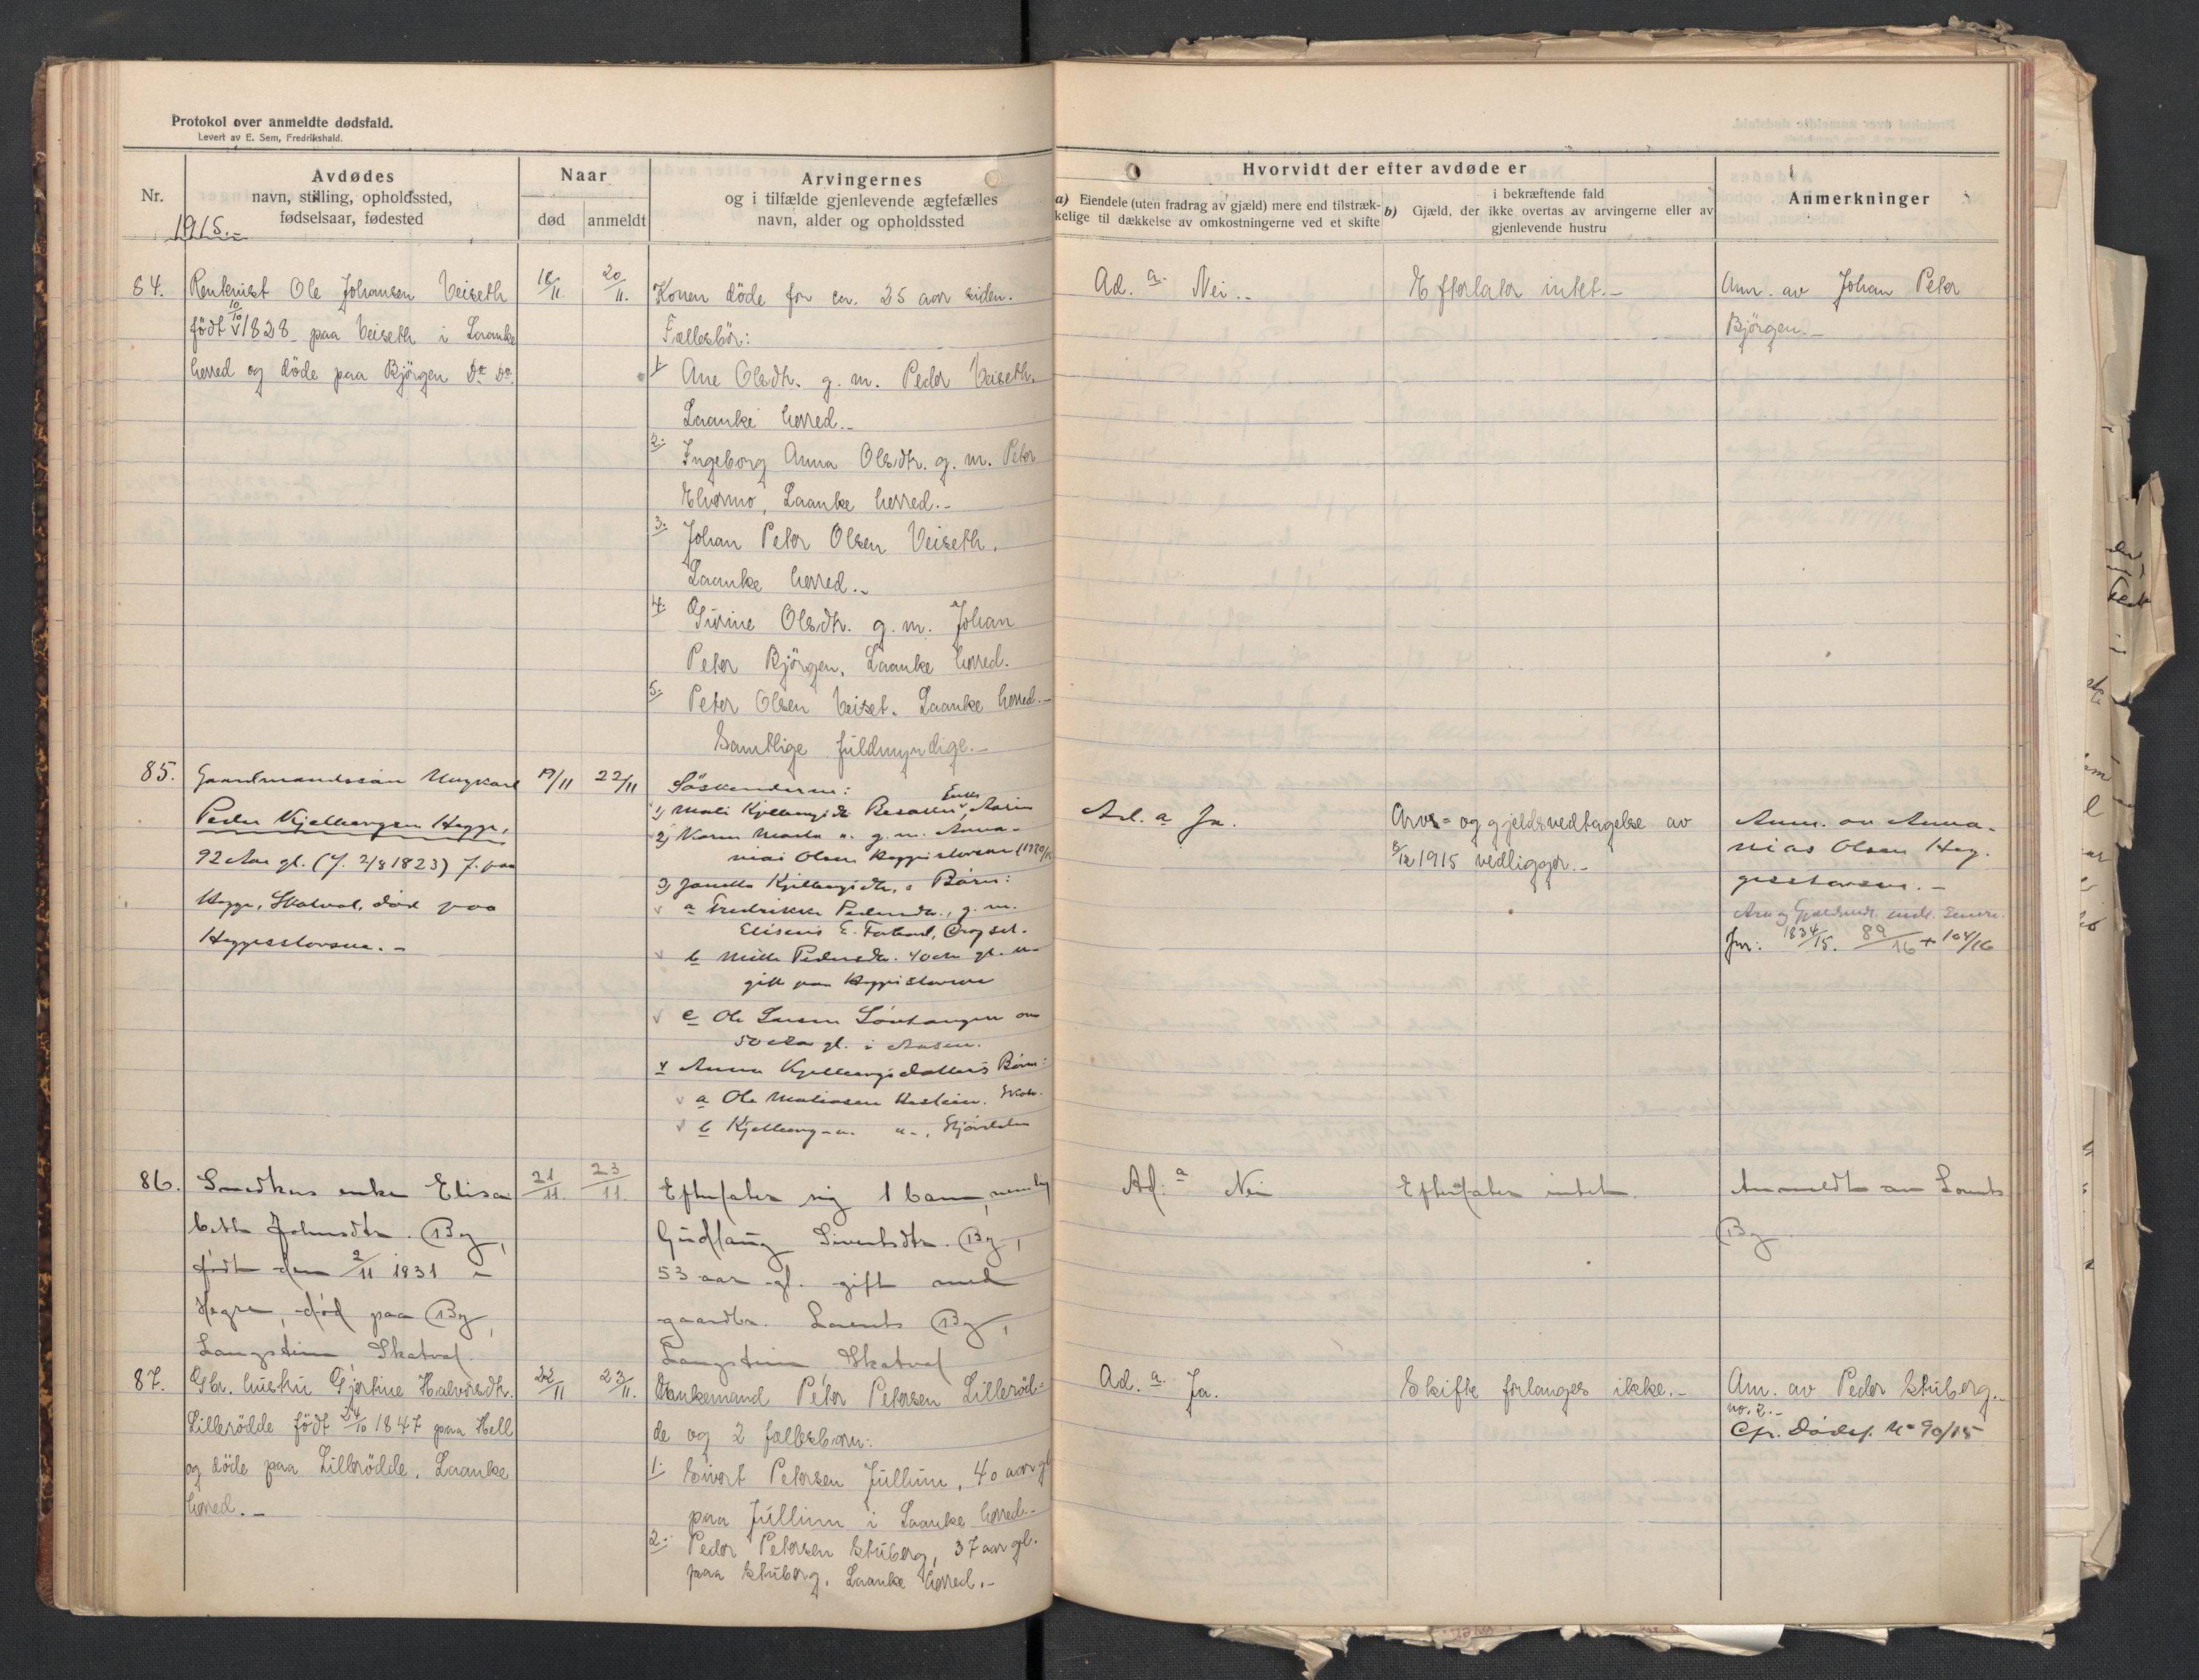 Protokol over anmeldte dødsfald.
Levert av E. Sem, Fredrikshald.
Nr.
1915.-
Avdødes
navn, stilling, opholdssted,
fødselsaar, fødested
Naar
død
anmeldt
Arvingernes
og i tilfælde gjenlevende ægtefælles
navn, alder og opholdssted
Hvorvidt der efter avdøde er
a) Eiendele (uten fradrag av gjæld) mere end tilstræk-
kelige til dækkelse av omkostningerne ved et skifte
b) Gjæld, der
i bekræftende fald
ikke overtas av arvingerne eller av
gjenlevende hustru
Anmerkninger
84.
Rentenist Ole Johansen Veiseth
født 10/10 1828 paa Veiseth i Laanke
herred og døde paa Bjørgen Do Do.
18/11.
20/11.
Konen døde for ca. 25 aar siden.
Fællesbør:
1. Ane Olsdtr. g. m. Peder Veiseth,
Laanke herred.-
2. Ingeborg Anna Olsdtr. g. m. Peter
Elvermo, Laanke herred.-
3. Johan Peter Olsen Veiseth,
Laanke herred.-
4. Gurine Olsdtr. g. m. Johan
Peter Bjørgen, Laanke herred.
5. Peter Olsen Veiset. Laanke herred.-
Samtlige fuldmyndige.-
Ad. a. Nei.-
Efterlater intet.-
Anm. av Johan Peter
Bjørgen.-
85.
Gaardmandssøn Ungkarl
Peder Kjelbergsen Hegge,
92 Aar gl. (f. 2/8 1823) f. paa
Hegge, Skatval, død paa
Heggesstovsve.-
19/11
22/11
Søskenderne:
1) Mali Kjelbergsdtr Enke, Aasen
2) Karen Marta " g. m. Anna-
nias Olsen
3) Kjelbergsdtr,s Børn:
a Fredrikke Pedersdtr., g. m.
Eliseus E.
b Mille Pedersdtr. 40 Aar gl. u-
gift paa
c Ole Larsen
50 Aar gl. i Aasen.
4 Anna Kjelbergsdatters Børn:
a Ole Mathiasen Skatv.
b Kjelberg -"- "-, Stjørdalen
Ad. a Ja.
Arvs= og gjeldsvedtagelse av
8/12 1915 vedligger.-
Anm. av Anna-
nias Olsen Heg-
gesstovsve.-
Jnr: 1834/15. 89/16 + 104/16
86.
Smedkus enke Elisa
beth Johnsdtr. By,
født den 2/11 1831 i
Hegra, død paa By,
Langstein Skatval
21/11.
23/11
Efterlater sig 1 barn, nemlig
Gudlaug Sivertsdtr. By,
53 aar gl. gift med
gaardbr. Lorents By,
Langstein Skatval
Ad: a Nei
Efterlater intet.
Anmeldt av Lorents
By
87.
Gbr. hustru Gjertine Halvorsdtr.
Lillerødde født 24/10 1847 paa Hell
og døde paa Lillerødde, Laanke
herred.-
22/11
23/11.
Enkemand Peter Petersen Lillerød=
de og 2 fællesbarn:
1. Sivert Petersen Jullum, 40 aar gl
paa Jullum i Laanke herred.-
2. Peder Petersen Stuberg, 37 aar gl.
paa Stuberg, Laanke herred.-
Ad. a. Ja.
Skifte forlanges ikke.-
Am. av Peder Stuberg.-
no. 2.-
Cfr. Dødsf. No 90/15